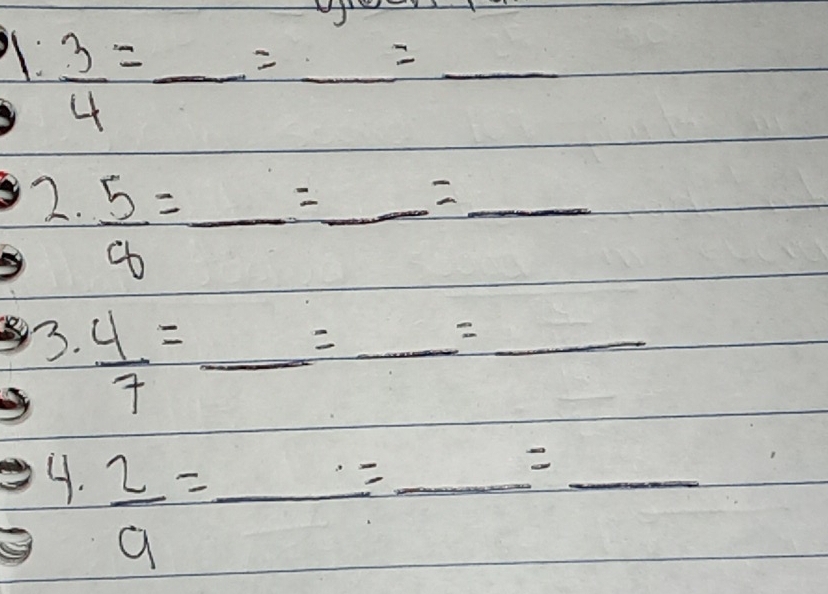 1. 3 = ___ = ___ = ___
4
2. 5 = ___ = ___ = ___
8
3. 4 = ___ = ___ = ___
7
4. 2 = ___ = ___ = ___
9